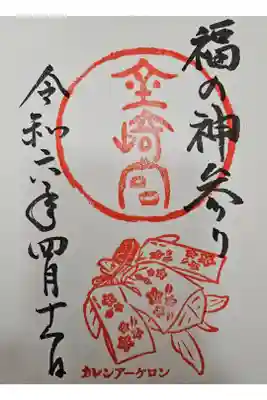 福の神参り
金崎宮
令和六年四月十一日
カレンアーケロン